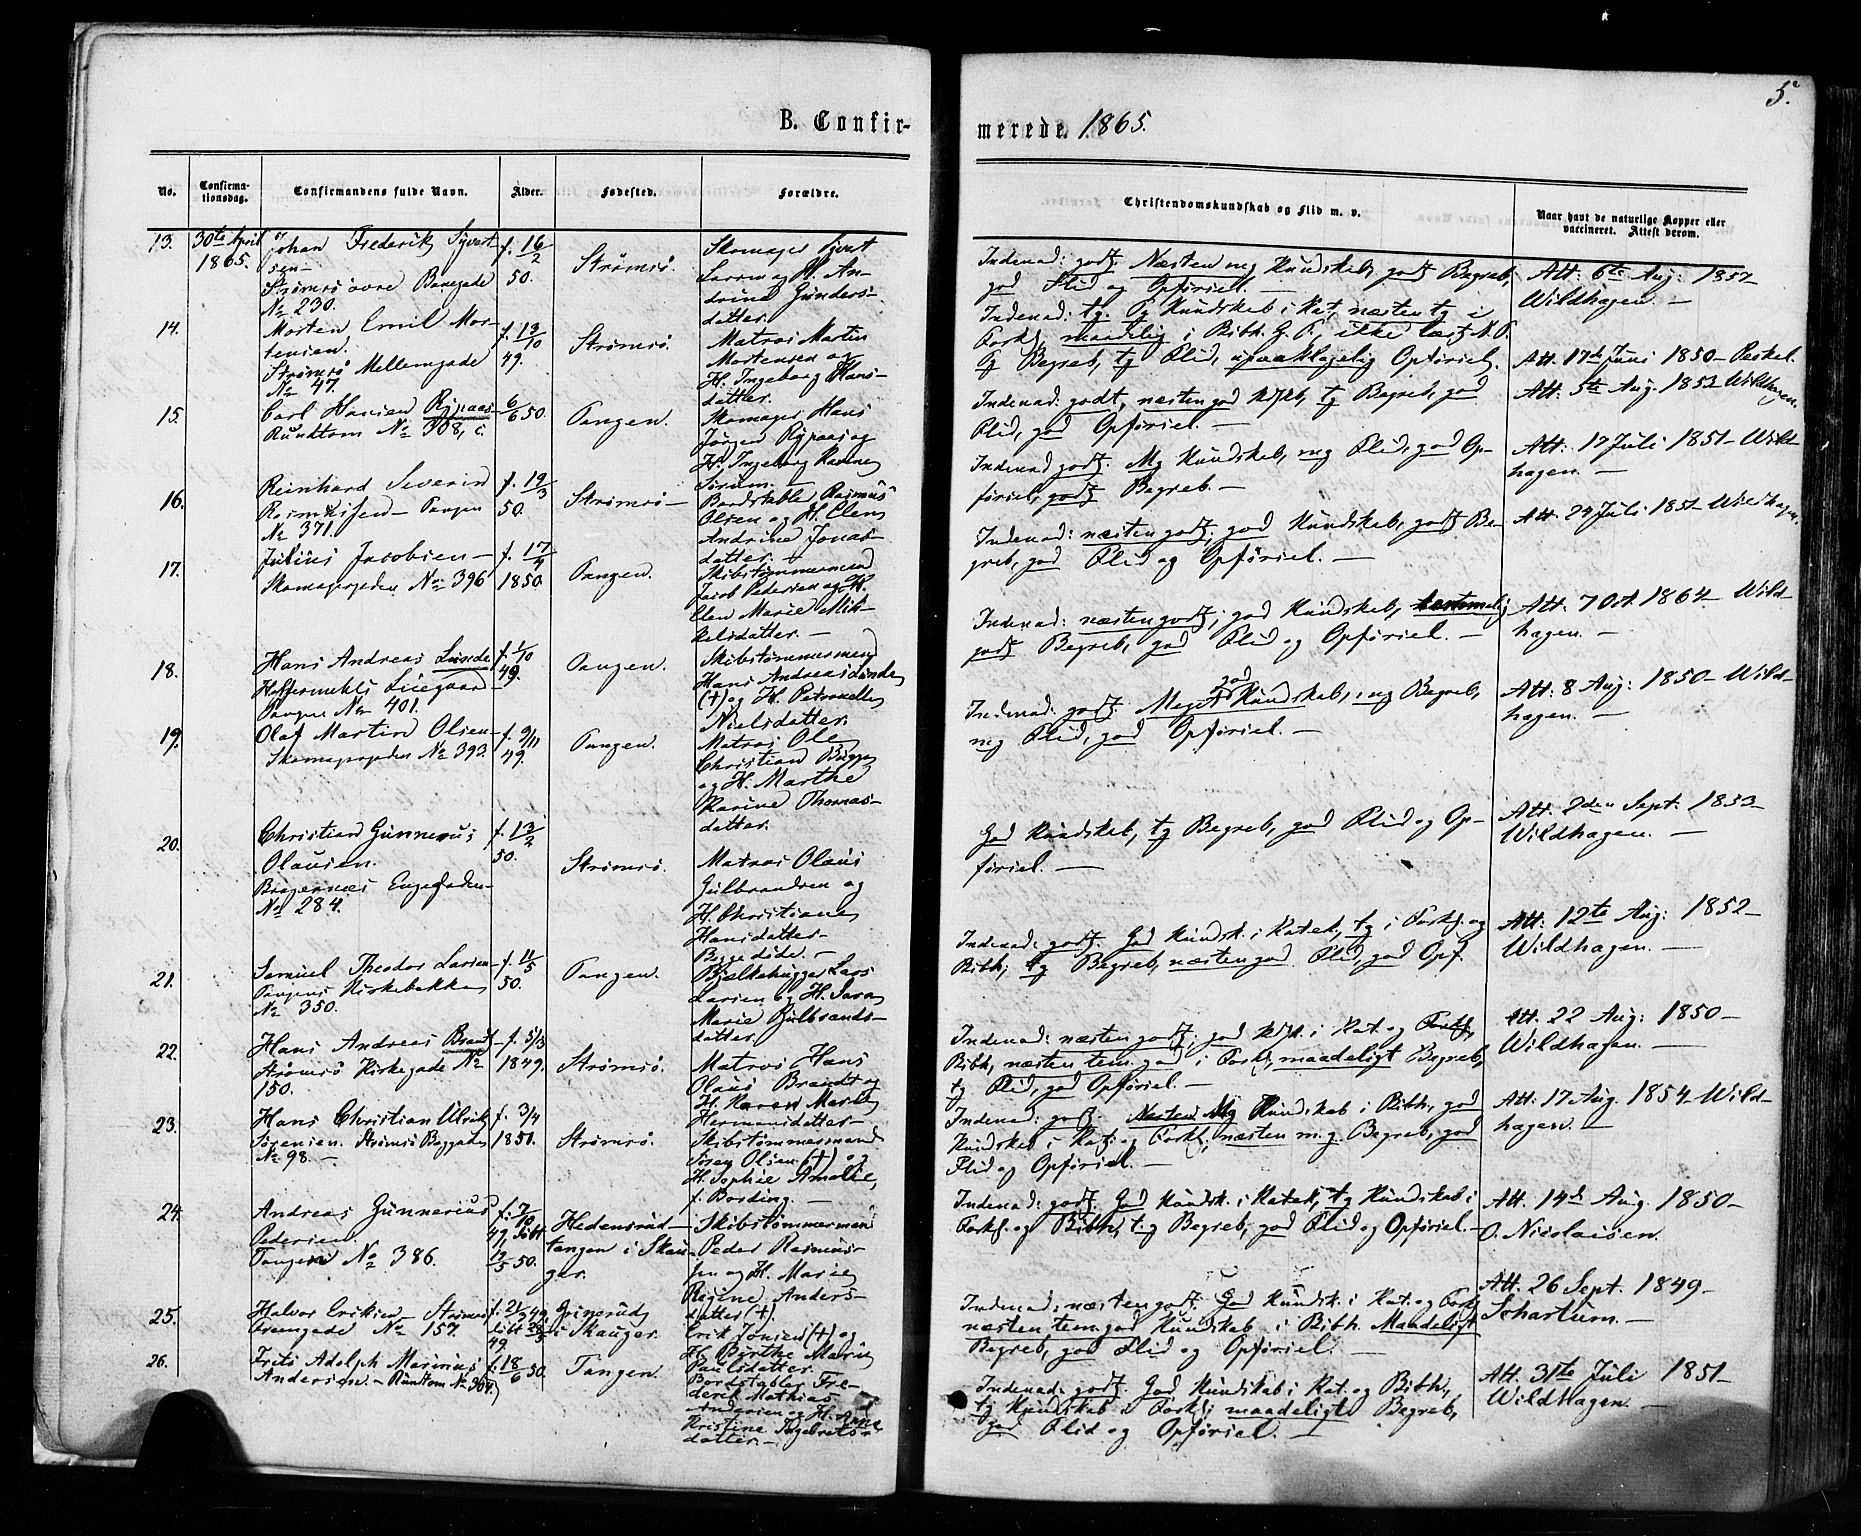 5.
B. Confir-
merede. 1865.
No.
Confirma-
tionsdag.
Confirmandens fulde Navn.
Alder.
Fødested.
Forældre.
Christendomskundskab og Flid m. v.
Naar havt de naturlige Kopper eller
vaccineret. Attest derom.
13.
30te April
1865.
Johan Frederik Syvert
sen
Strømsø øvre
No 230.
f. 16/2
50.
Strømsø.
Skomager Syvert
Larsen og H. An-
drine Gunders-
datter.
Indenad: godt. Næsten mg Kundskab, godt Begreb,
god Flid og Opførsel. —
Att: 6te Aug: 1857
Wildhagen. —
14.
Morten Emil Mor-
tensen.
Strømsø Mellemgade
No 47.
f. 13/10
49.
Strømsø.
Matros Martin
Mortensen og
H. Ingeborg Hans-
datter.
Indenad: tg. Kundskab i Kat, næsten tg i
Forkl, maadelig i Bibh. ikke læst N. T.
tg Begreb, tg Flid, upaaklagelig Opførsel.
Att. 17de Juni 1850
15.
Carl Hansen Rypaas
Rundtom No 308, c.
6/6 50.
Tangen.
Skomager Hans
Jørgen Rypaas og
H. Ingeborg
Indenad: godt, næsten god Kdsk, tg Begreb, god
Flid, god Opførsel. —
Att: 5te Aug. 1853 Wildhagen.
16.
Reinhard Severin
Tangen
No 371.
f. 19/3
50.
Strømsø —
Bordskabler Rasmus
Olsen og H. Elen
Andrine Jonas-
datter. —
Indenad godt. Mg Kundskab, mg Flid, god Op-
førsel, godt Begreb. —
Att: 17 Juli 1851 Wild-
hagen. —
17.
Julius Jacobsen —
No 396
f. 17/4
1850.
Tangen.
Skibstømmermand
Jacob Pedersen og H.
Elen Marie Mik-
kelsdatter. —
Indenad: næsten godt; god Kundskab, godt Be-
greb, god Flid og Opførsel. —
Att: 24 Juli 1851 Wildhagen.
18.
Hans Andreas Lunde
Tangen No 401.
f. 1/10
49.
Tangen.
Skibstømmermand
Hans Andreas Lunde
(†) og H. Petronelle
Nielsdatter.
Indenad: næsten godt; god Kundskab,
godt Begreb, god Flid og Opførsel. —
Att. 7 Oct. 1864 Wild-
hagen. —
19.
Olaf Martin Olsen
No 393.
f. 9/11
49.
Tangen.
Matros Ole
Christian Bugge
og H. Marthe
Karine Thomas-
datter.
Indenad: godt. Meget god Kundskab, mg Begreb,
mg Flid, god Opførsel. —
Att: 8 Aug: 1850 Wild-
hagen. —
20.
Christian Gunnerius
Olausen.
Bragernæs Engegaden
No 284.
f. 13/2
50.
Strømsø.
Matros Olaus
Gulbrandsen og
H. Christiane
Hansdatter
Begge døde. —
God Kundskab, tg Begreb, god Flid og Op-
førsel. —
Att. 2den Sept: 1853
Wildhagen. —
21.
Samuel Theodor Larsen
Tangens Kirkebakke
No 350.
f. 11/5
50.
Tangen.
Bjælkehugger Lars
Larsen og H. Sara
Marie Gulbrands-
datter.
Indenad: godt. God Kundsk. i Katek, tg i Forkl. og
Bibh, tg Begreb, næsten god Flid, god Opf.
Att: 12te Aug: 1852
Wildhagen. —
22.
Hans Andreas Brandt
Strømsø Kirkegade No
150.
f. 5/3
1849.
Strømsø.
Matros Hans
Olaus Brandt og
H. Karen Marie
Hermansdatter
Indenad: næsten godt; god Kdsk. i Kat. og Forkl,
Bibh, næsten tem. god i Forkl, maadeligt Begreb,
tg Flid, god Opførsel. —
Att: 22 Aug: 1850
Wildhagen. —
23.
Hans Christian Ulrik
Sørensen. Strømsø
No 98. —
f. 3/4
1851.
Strømsø.
Skibstømmermand
Søren Olsen (†) og
H. Sophie Amalie,
f. Bording. —
Indenad: godt. Næsten Mg Kundskab i Bibh, god
Kundskab i Kat. og Forkl, næsten m. g. Begreb, god
Flid og Opførsel. —
Att: 17 Aug. 1854 Wild-
hagen. —
24.
Andreas Gunnerius
Pedersen
Tangen No 386.
f. 7/10
49, døbt
12/5 50.
Hedensrud-
tangen i Skau-
ger.
Skibstømmermand
Peder Rasmus-
sen og H. Marie
Regine Anders-
datter (†).
Indenad: godt. God Kundsk. i Katek, tg Kundskab i
Forkl. og Bibh, tg Begreb, god Flid og Opførsel. —
Att. 14de Aug. 1850
O. Nicolaisen.
25.
Halvor Eriksen Strømsø
No 157.
49
Grinerud
i Skauger.
Erik Jonsen (†) og
H. Birthe Marie
Paulsdatter.
Indenad: næsten godt. God Kundsk. i Kat. og Forkl,
næsten tem. god Kundskab i Bibh. Maadeligt
Begreb, god Flid og Opførsel.
Att. 26 Sept. 1849
Schartum. —
26.
Frits Adolph Marinius
Andersen. — Rundtom No 304.
f. 18/6 50.
Tangen.
Bordstabler Fre-
derik Mathias
Andersen og H. Anne
Kristine Ingebrets-
datter. —
Indenad: godt. God Kundskab i Kat. og Bibh,
tg Kundskab i Forkl; maadeligt Begreb,
god Flid og Opførsel. —
Att. 31te Juli 1851
Wildhagen. —